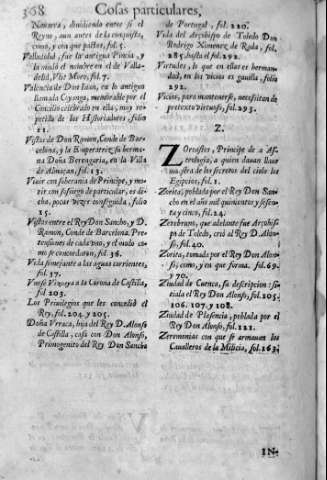 368 Cosas particulares,
Navarra, dividiendo entre sí el
Reyno, aun antes de la conquista,
como, y con que pactos, fol. 5.
Valladolid, fue la antigua Pincia, y
la mudó el nombre en el de Valla-
dolid, Vlit Moro, fol. 7.
Valencia de Don Iuan, en lo antiguo
llamada Coyança, memorable por el
Concilio celebrado en ella, muy ro-
petida de los Historiadores, folio
11.
Vistas de Don Ramon, Conde de Bar-
celona, y la Emperatriz su herma-
na Doña Berengaria, en la Villa
de Almaçan, fol. 13.
Vivir con soberania de Principe, y mo-
rir con sosiego de particular, es di-
cha, pocas vezes conseguida, folio
15.
Vistas entre el Rey Don Sancho, y D.
Ramon, Conde de Barcelona. Pre-
tensiones de cada vno, y el modo co-
mo se concordaron, fol. 36.
Vida semejante a las aguas corrientes,
fol. 37.
Vnese Vizcaya a la Corona de Castilla,
fol 203.
Los Privilegios que les concediò el
Rey, fol. 204. y 205.
Doña Vrraca, hija del Rey D. Alonso
de Castilla, casa con Don Alonso,
Primogenito del Rey Don Sancho
de Portugal, fol. 220.
Vida del Arçobispo de Toledo Don
Rodrigo Ximenez de Rada, fol.
285. hasta el 292.
Virtudes, à que en ellas es herman-
dad, en los vicios es gavilla, folio
292.
Vicios, para mantenerse, necessitan de
pretexto virtuoso, fol. 293.
Z.
Zoroastes, Principe de a As-
trologia, a quien davan llave
maestra de los secretos del cielo los
Egipcios, fol. 1.
Zorita, poblada por el Rey Don San-
cho en el año mil quinientos y sesen-
ta y cinco, fol. 24.
Zerebruno, que adelante fue Arçobis-
po de Toledo, criò al Rey D. Alon-
so, fol. 40.
Zorita, tomada por el Rey Don Alon-
so, como, y en que forma. fol. 69.
y 70.
Ziudad de Cuenca, su descripcion: si-
tiala el Rey Don Alonso, fol. 105.
106. 107. y 108.
Ziudad de Plasencia, poblada por el
Rey Don Alonso, fol. 121.
Zeremonias con que se armavan los
Cavalleros de la Milicia, fol. 163.
IN-